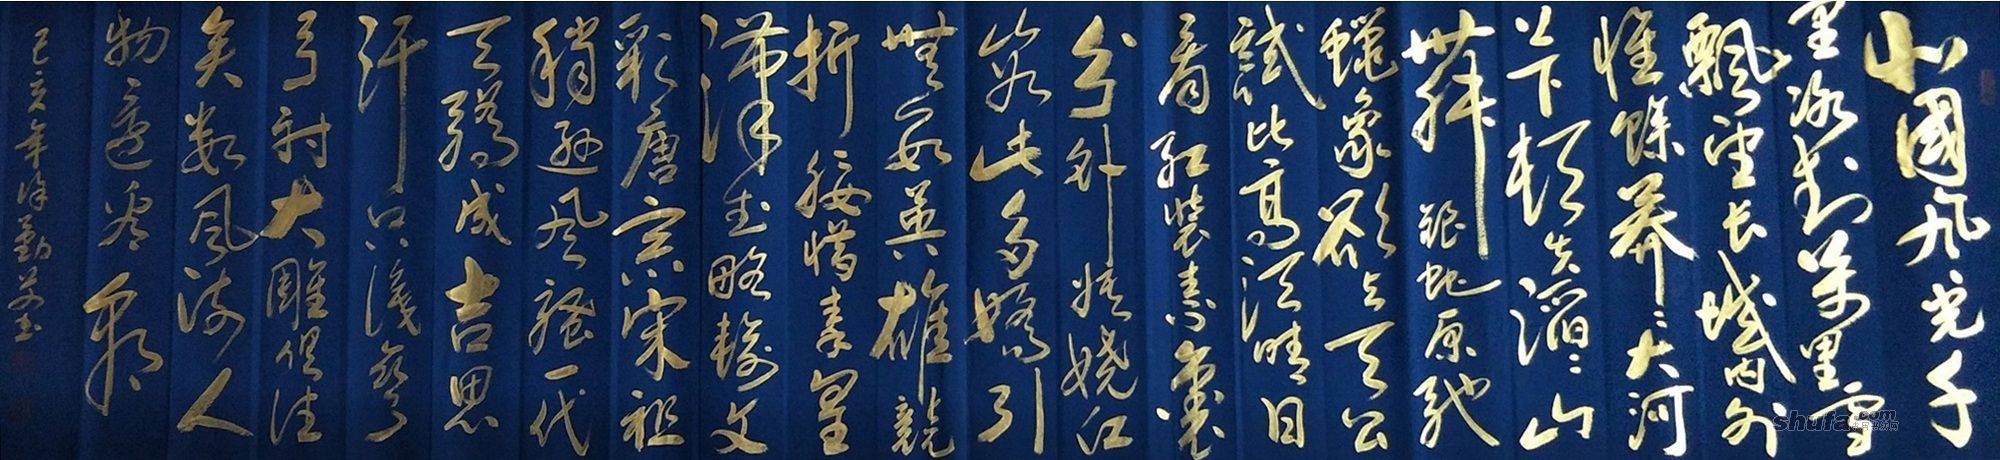 北國風光千
里冰封萬里雪
飄望长城内外
惟餘莽〻大河
上下頓失滔〻山
舞銀蛇原馳
蠟象欲与天公
試比高須晴日
看紅裝素裹
分外妖娆江
山如此多嬌引
無數英雄競
折腰惜秦皇
漢武略輸文
彩唐宗宋祖
稍逊風騷一代
天驕成吉思
汗只識彎
弓射大雕俱往
矣數風流人
物還看今朝
己亥年徐勤英书
shufa.com